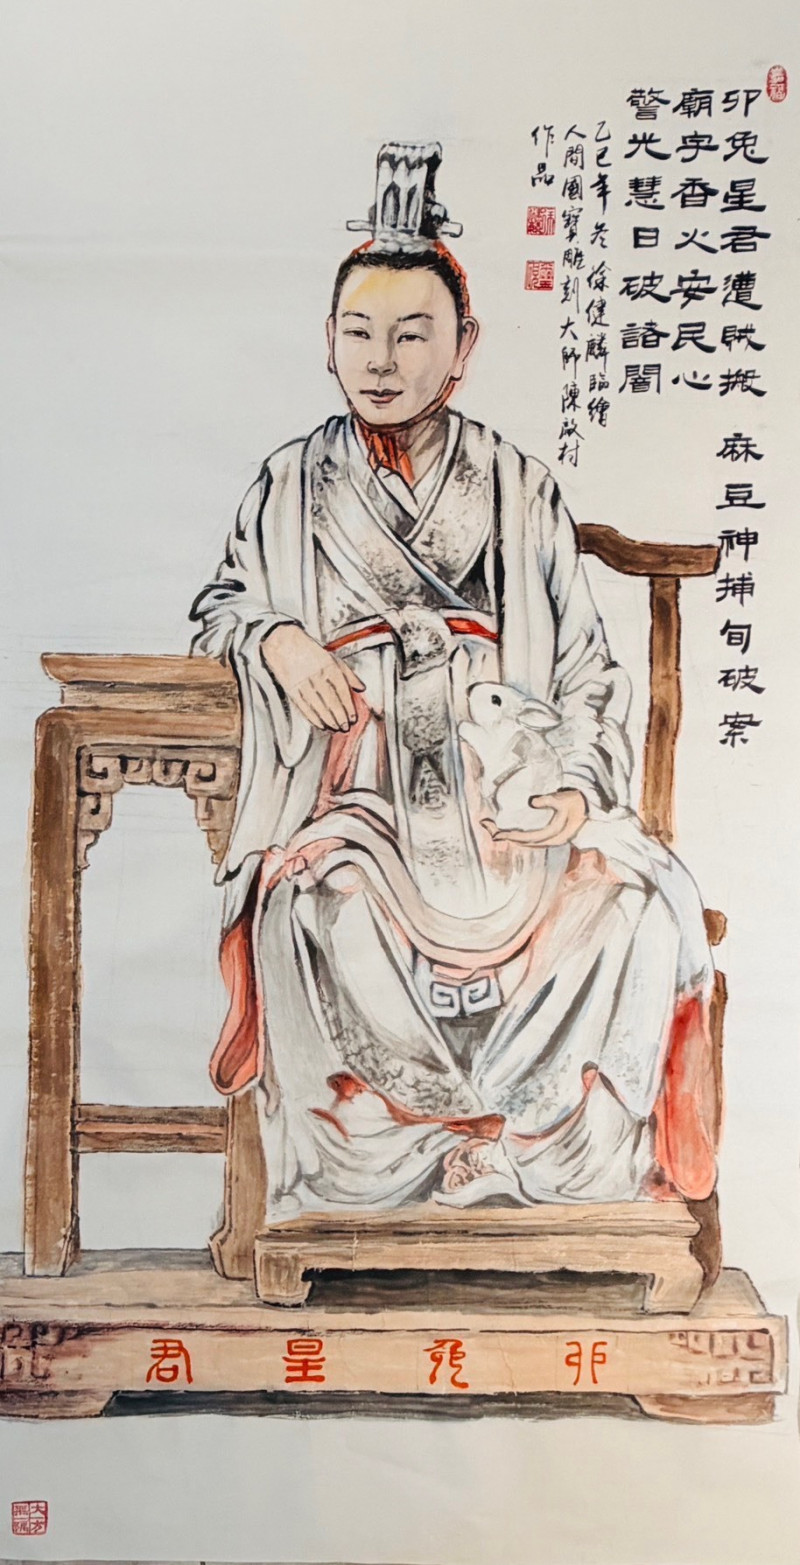 卯兔星君遭賊搬 麻豆神捕旬破案
廟宇香火安民心
警光慧日破諸闇
乙巳年冬徐健麟臨繪
人間國寶雕刻大師陳啟村
作品
卯兔星君
大方無隅